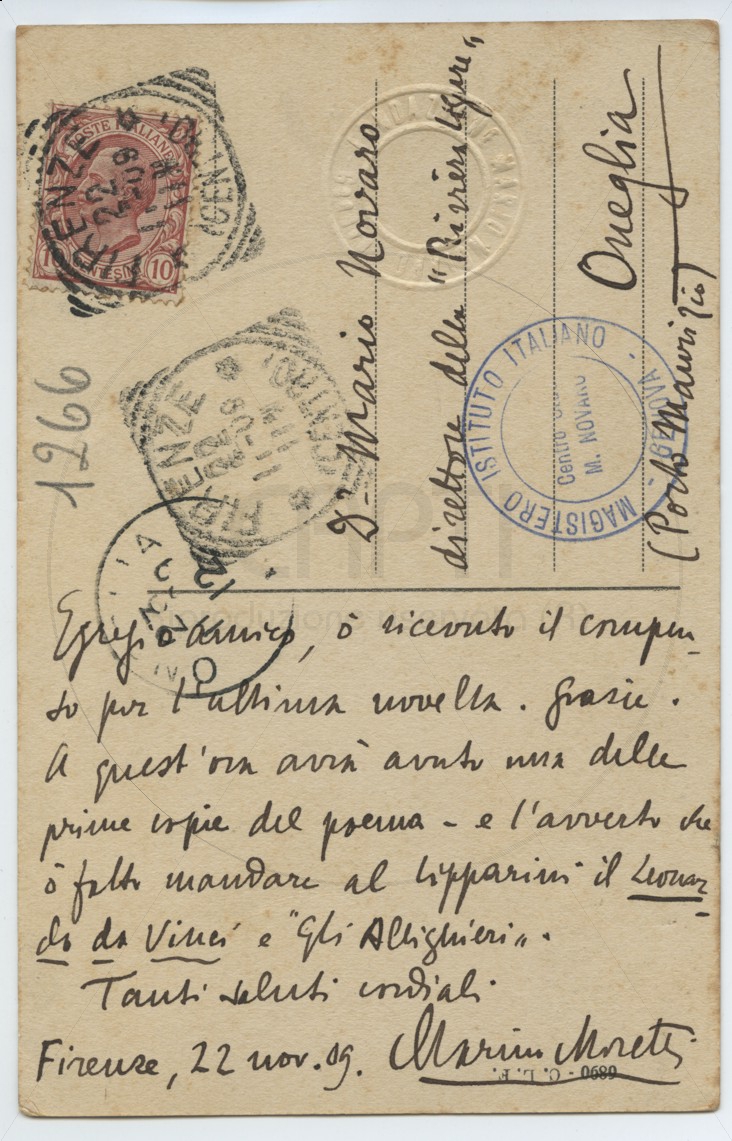 POSTE ITALIANE
10 CENTESIMI 10
FIRENZE
22
FIRENZE
CENTRO
1266
Dr Mario Novaro
direttore della "Riviera Ligure"
Oneglia
(Porto Maurizio)
MAGISTERO ISTITUTO ITALIANO · GENOVA ·
Centro
M. NOVARO
12
Egregio amico, ò ricevuto il compen-
so per l'ultima novella. Grazie.
A quest'ora avrà avuto una delle
prime copie del poema – e l'avverto che
ò fatto mandare al Lipparini il Leonar-
do da Vinci e "Gli Allighieri".
Tanti saluti cordiali
Firenze, 22 nov. 09. Marino Moretti
0689 - C. L. F.